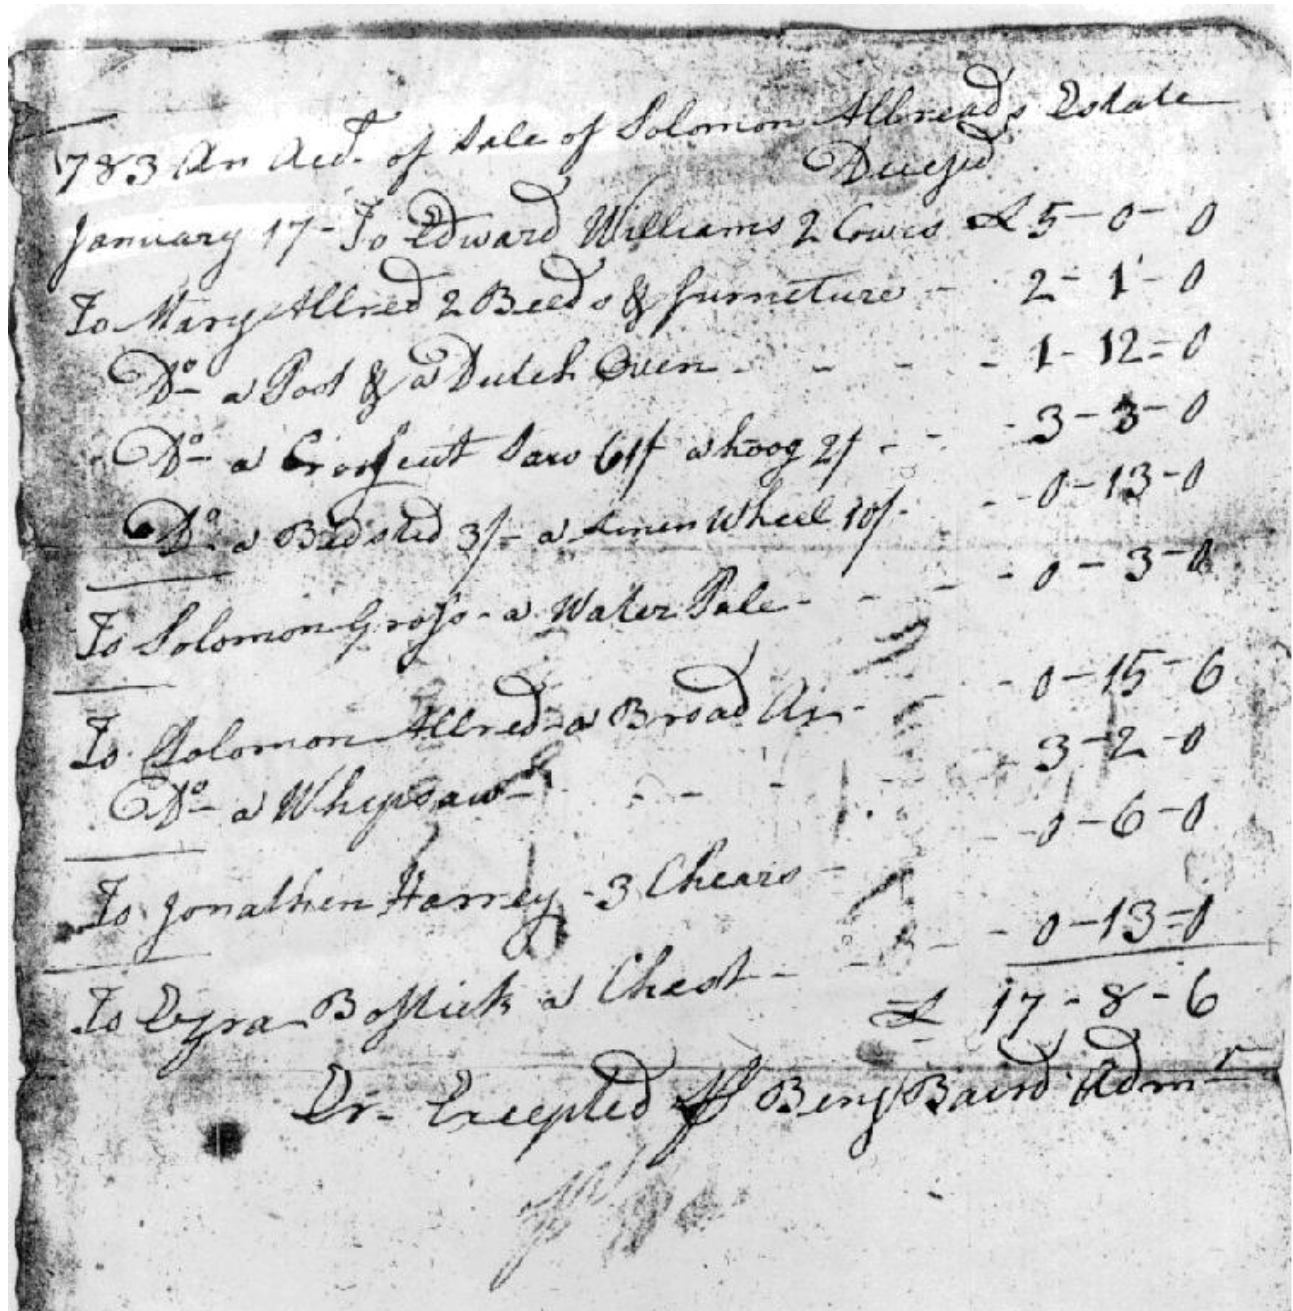 783 An Acct. of Sale of Solomon Allread's Estate
Decesd
January 17 - To Edward Williams 2 Cows £ 5 - 0 - 0
To Mary Allred 2 Beeds & furneture - 2 - 1 - 0
Do - a Poot & a Dutch Oven - - - - 1 - 12 = 0
Do - a Crosscut Saw 61/ a hoog 2/ - - - 3 - 3 - 0
Do a Bedsted 3/ - a Linen Wheel 10/ - - - 0 - 13 - 0
To Solomon Gross - a Water Pale - - - - 0 - 3 - 0
To Solomon Allred - a Broad Ax - - - 0 - 15 - 6
Do - a Whipsaw - - - - 3 - 2 - 0
To Jonathen Harrey - 3 Chears - - - 0 - 6 - 0
To Ezra Bostick a Chest - - - - 0 - 13 = 0
£ 17 - 8 - 6
Er - Excepted Benj Baird Admr